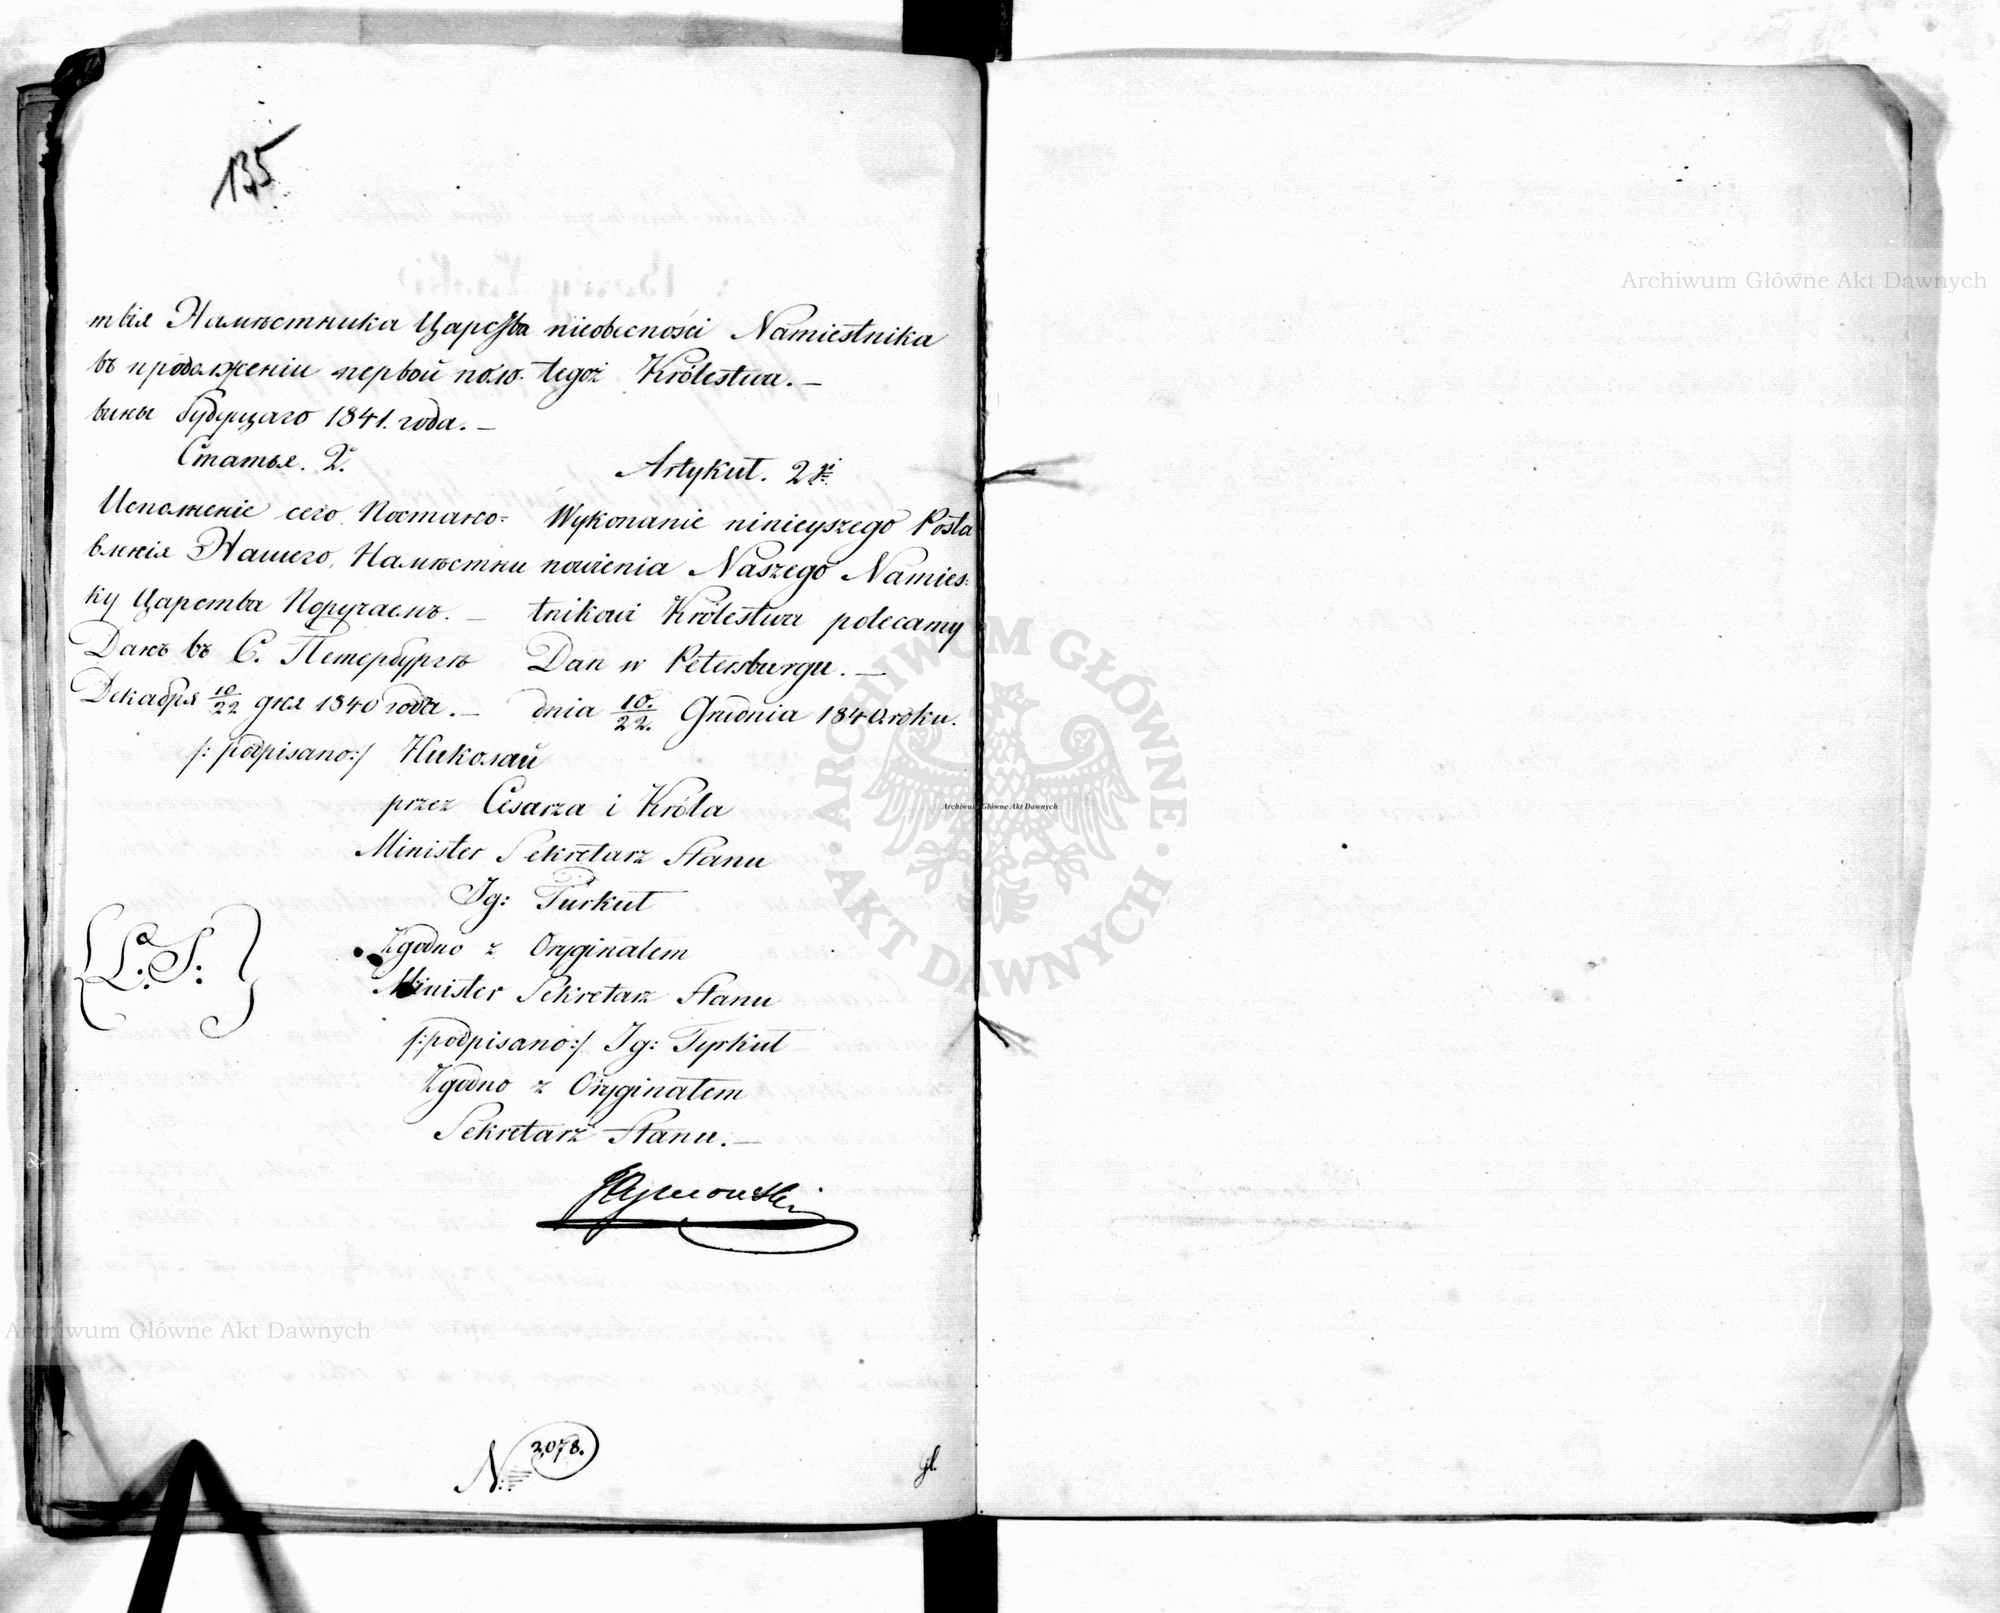 135
твія Намѣстника Царства
въ продолженіи первой поло-
вины будущаго 1841. года. —
Статья. 2.
Исполненіе сего Постано=
вленія Нашего, Намѣстни
ку Царства Поручаемъ. —
Данъ въ С. Петербургѣ
Декабря 10/22 дня 1840 года. —
nieobecności Namiestnika
tegoż Królestwa. —
Artykuł. 2gi
Wykonanie ninieyszego Posta
nowienia Naszego Namies=
tnikowi Królestwa polecamy
Dan w Petersburgu. —
dnia 10./22. Grudnia 1840. roku.
/: podpisano :/ Николай
przez Cesarza i Króla
Minister Sekretarz Stanu
Ig: Turkuł
(L. S.)
Zgodno z Oryginałem
Minister Sekretarz Stanu
/: podpisano :/ Ig: Tyrkuł
Zgodno z Oryginałem
Sekretarz Stanu. —
N: 2078.
gl.
Archiwum Główne Akt Dawnych
ARCHIWUM GŁÓWNE AKT DAWNYCH
Archiwum Główne Akt Dawnych
Archiwum Główne Akt Dawnych